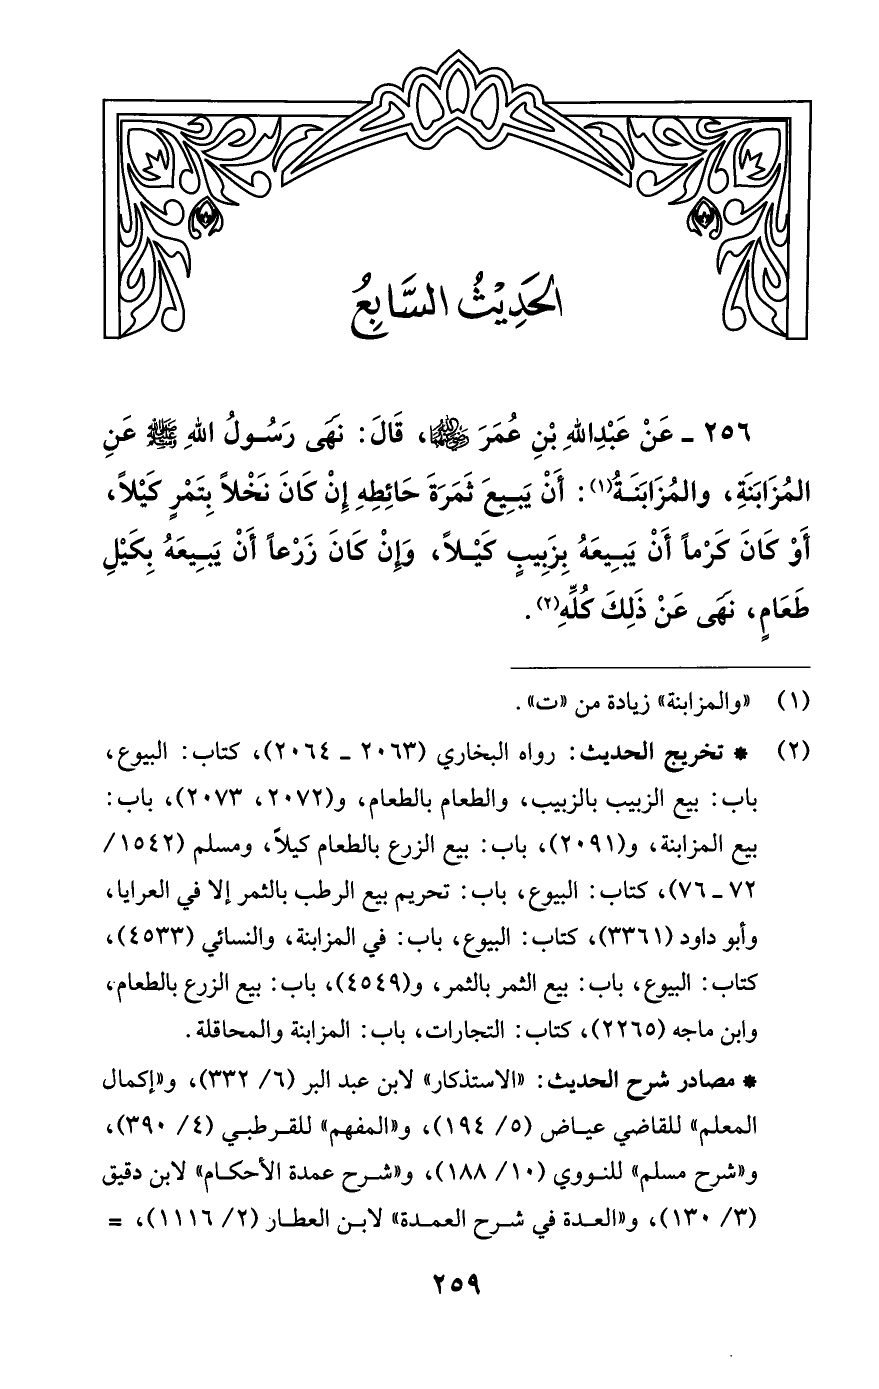 الحَدِيْثُ السَّابِعُ
٢٥٦ ـ عَنْ عَبْدِاللهِ بْنِ عُمَرَ ﵄، قَالَ: نَهَى رَسُولُ اللهِ ﷺ عَنِ
المُزَابَنَةِ، والمُزَابَنَةُ(١): أَنْ يَبِيعَ ثَمَرَةَ حَائِطِهِ إِنْ كَانَ نَخْلاً بِتَمْرٍ كَيْلاً،
أَوْ كَانَ كَرْماً أَنْ يَبِيعَهُ بِزَبِيبٍ كَيْلاً، وَإِنْ كَانَ زَرْعاً أَنْ يَبِيعَهُ بِكَيْلِ
طَعَامٍ، نَهَى عَنْ ذَلِكَ كُلِّهِ(٢).
(١) «والمزابنة» زيادة من «ت».
(٢) * تخريج الحديث: رواه البخاري (٢٠٦٣ ـ ٢٠٦٤)، كتاب: البيوع،
باب: بيع الزبيب بالزبيب، والطعام بالطعام، و(٢٠٧٢، ٢٠٧٣)، باب:
بيع المزابنة، و(٢٠٩١)، باب: بيع الزرع بالطعام كيلاً، ومسلم (١٥٤٢/
٧٢ ـ ٧٦)، كتاب: البيوع، باب: تحريم بيع الرطب بالثمر إلا في العرايا،
وأبو داود (٣٣٦١)، كتاب: البيوع، باب: في المزابنة، والنسائي (٤٥٣٣)،
كتاب: البيوع، باب: بيع الثمر بالثمر، و(٤٥٤٩)، باب: بيع الزرع بالطعام،
وابن ماجه (٢٢٦٥)، كتاب: التجارات، باب: المزابنة والمحاقلة.
* مصادر شرح الحديث: «الاستذكار» لابن عبد البر (٦/ ٣٣٢)، و«إكمال
المعلم» للقاضي عياض (٥/ ١٩٤)، و«المفهم» للقرطبي (٤/ ٣٩٠)،
و«شرح مسلم» للنووي (١٠/ ١٨٨)، و«شرح عمدة الأحكام» لابن دقيق
(٣/ ١٣٠)، و«العدة في شرح العمدة» لابن العطار (٢/ ١١١٦)، =
٢٥٩